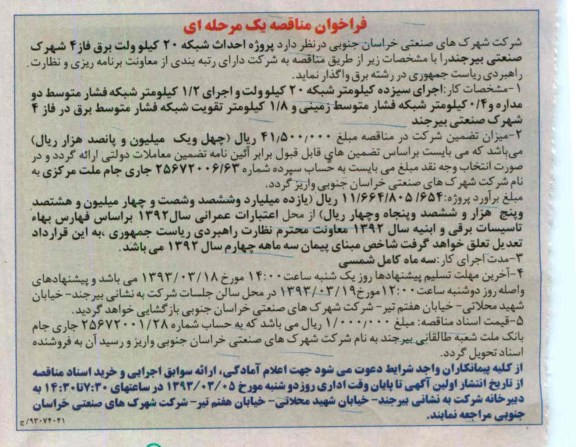 فراخوان مناقصه یک مرحله ای
شرکت شهرک های صنعتی خراسان جنوبی درنظر دارد پروژه احداث شبکه ۲۰ کیلو ولت برق فاز۴ شهرک
صنعتی بیرجندرا با مشخصات زیر از طریق مناقصه به شرکت دارای رتبه بندی از معاونت برنامه ریزی و نظارت.
راهبردی ریاست جمهوری در رشته برق واگذار نماید.
۱-مشخصات کار:اجرای سیزده کیلومتر شبکه ۲۰ کیلو ولت و اجرای ۱/۲ کیلومتر شبکه فشار متوسط دو
مداره و۰/۴ کیلومتر شبکه فشار متوسط زمینی و ۱/۸ کیلومتر تقویت شبکه فشار متوسط برق در فاز ۴
شهرک صنعتی بیرجند
۲-میزان تضمین شرکت در مناقصه مبلغ ۴۱,۵۰۰,۰۰۰ ریال (چهل ویک میلیون و پانصد هزار ریال)
می‌باشد که می بایست براساس تضمین های قابل قبول برابر آئین نامه تضمین معاملات دولتی ارائه گردد و در
صورت انتخاب وجه نقد مبلغ می بایست به حساب سپرده شماره ۲۵۶۷۲۰۰۶/۶۳ جاری جام ملت مرکزی به
نام شرکت شهرک های صنعتی خراسان جنوبی واریز گردد.
مبلغ برآورد پروژه:۱۱/۶۶۴/۸۰۵/۶۵۴ ریال (یازده میلیارد وششصد وشصت و چهار میلیون و هشتصد
وپنج هزار و ششصد وپنجاه وچهار ریال) از محل اعتبارات عمرانی سال۱۳۹۲ براساس فهارس بهاء
تاسیسات برقی و ابنیه سال ۱۳۹۲ معاونت محترم نظارت راهبردی ریاست جمهوری ،به این قرارداد
تعدیل تعلق خواهد گرفت شاخص مبنای پیمان سه ماهه چهارم سال ۱۳۹۲ می باشد.
۳-مدت اجرای کار:سه ماه کامل شمسی
۴-آخرین مهلت تسلیم پیشنهادها روز یک شنبه ساعت ۱۴:۰۰ مورخ ۱۳۹۳/۰۳/۱۸ می باشد و پیشنهادهای
واصله روز دوشنبه ساعت۱۲:۰۰مورخ۱۳۹۳/۰۳/۱۹ در محل سالن جلسات شرکت به نشانی بیرجند-خیابان
شهید محلاتی- خیابان هفتم تیر- شرکت شهرک های صنعتی خراسان جنوبی بازگشایی خواهد گردید.
۵-قیمت اسناد مناقصه: مبلغ ۱/۰۰۰/۰۰۰ ریال می باشد که به حساب شماره ۲۵۶۷۲۰۰۱/۲۸ جاری جام
بانک ملت شعبه طالقانی بیرجند به نام شرکت شهرک های صنعتی خراسان جنوبی واریز و رسید آن به فروشنده
اسناد تحویل گردد.
از کلیه پیمانکاران واجد شرایط دعوت می شود جهت اعلام آمادگی، ارائه سوابق اجرایی و خرید اسناد مناقصه
از تاریخ انتشار اولین آگهی تا پایان وقت اداری روز دوشنبه مورخ ۱۳۹۳/۰۳/۰۵ در ساعتهای ۷:۳۰تا۱۴:۳۰ به
دبیرخانه شرکت به نشانی بیرجند- خیابان شهید محلاتی- خیابان هفتم تیر- شرکت شهرک های صنعتی خراسان
جنوبی مراجعه نمایند.
۹۳۰۷۴۰۴۱/ج